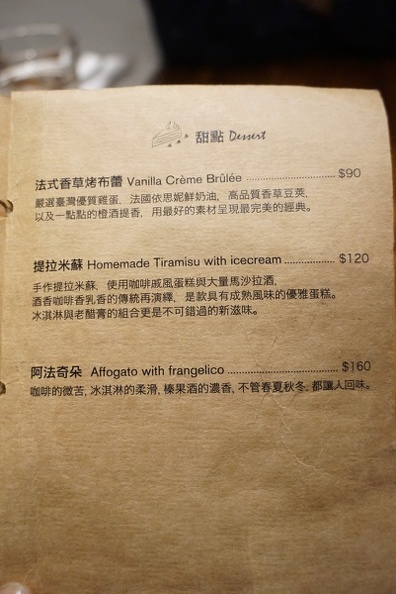 甜點 Dessert
法式香草烤布蕾 Vanilla Crème Brûlée ........................ $90
嚴選臺灣優質雞蛋, 法國依思妮鮮奶油, 高品質香草豆莢,
以及一點點的橙酒提香, 用最好的素材呈現最完美的經典。
提拉米蘇 Homemade Tiramisu with icecream .............. $120
手作提拉米蘇, 使用咖啡戚風蛋糕與大量馬沙拉酒,
酒香咖啡香乳香的傳統再演繹, 是款具有成熟風味的優雅蛋糕。
冰淇淋與老醋膏的組合更是不可錯過的新滋味。
阿法奇朵 Affogato with frangelico .............................. $160
咖啡的微苦, 冰淇淋的柔滑, 榛果酒的濃香, 不管春夏秋冬, 都讓人回味。